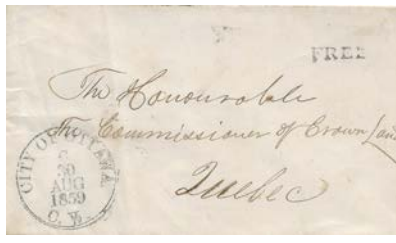 FREE
The Honourable
The Commissioner of Crown Land
Quebec
CITY OF OTTAWA
C
30
AUG
1859
C. W.